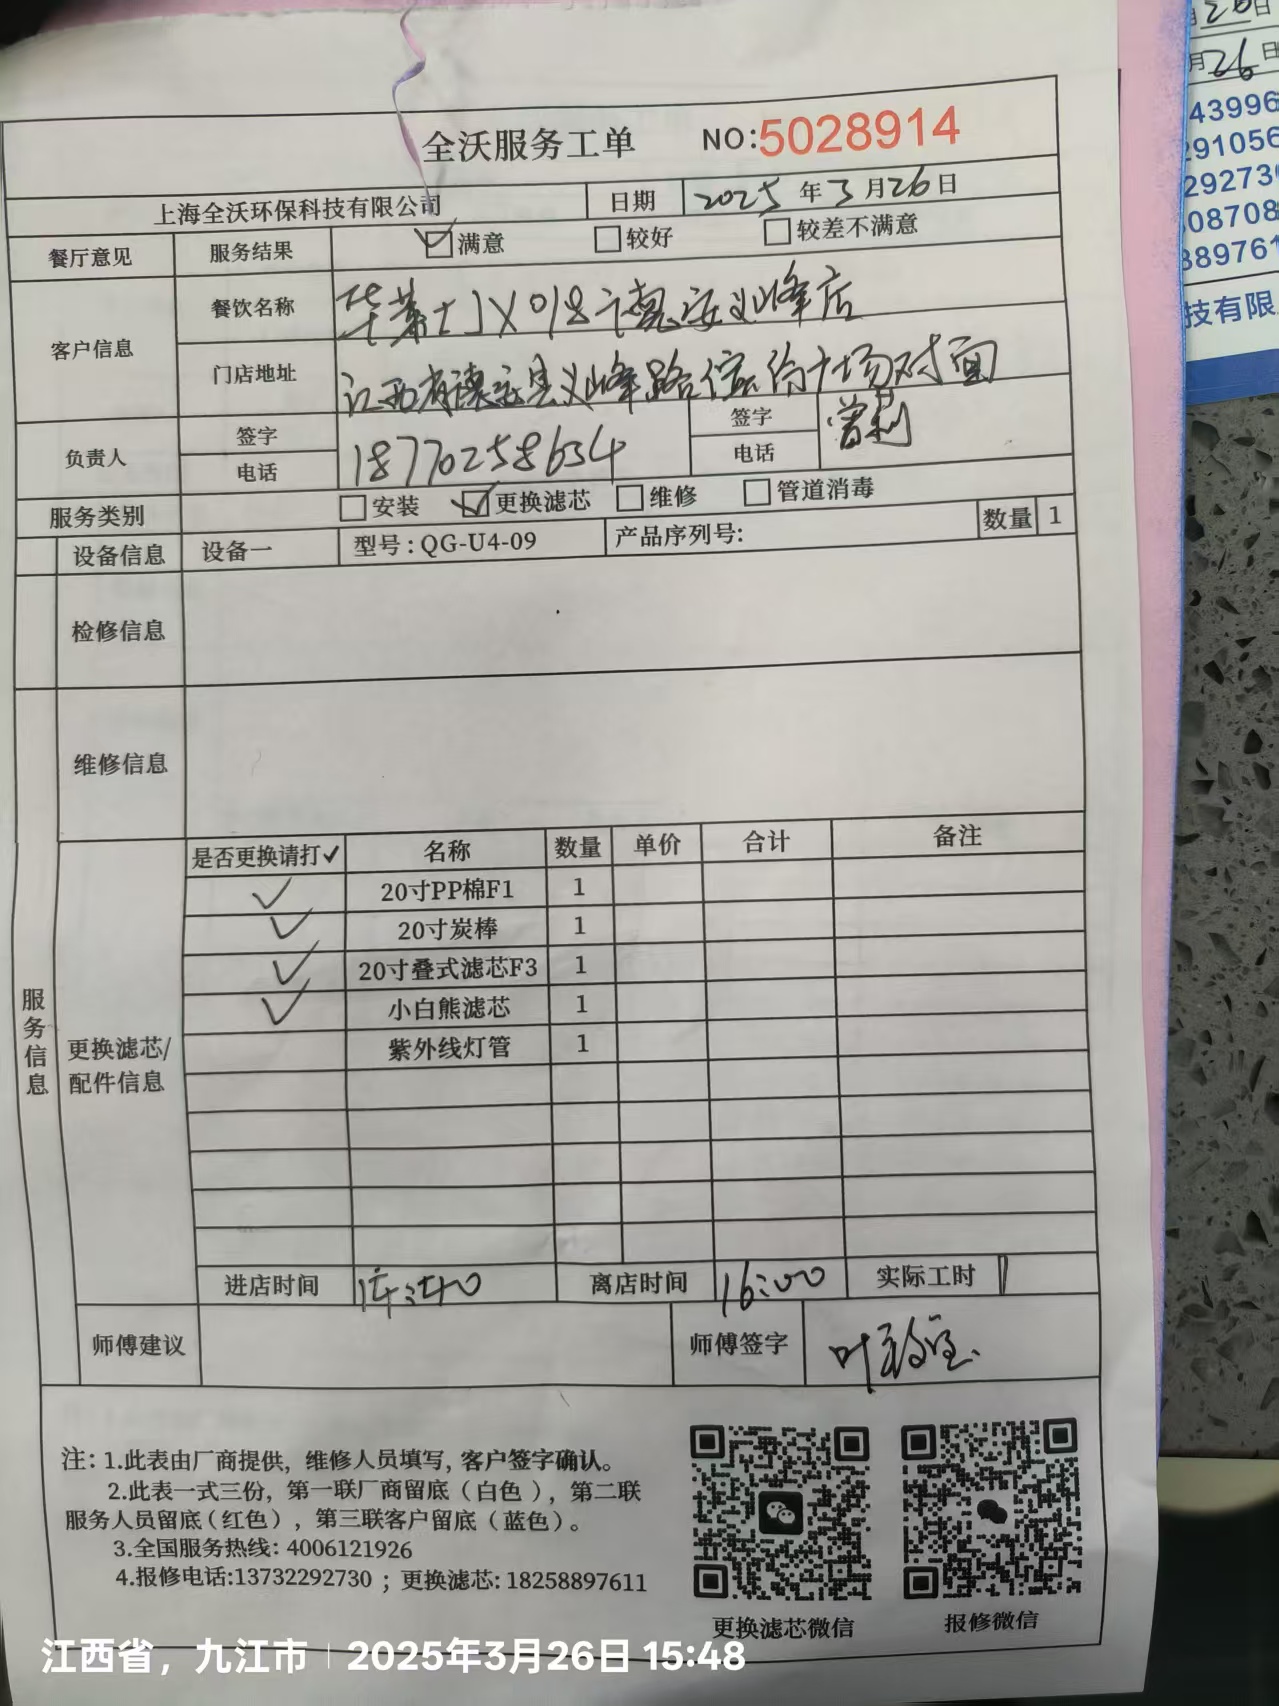 月26日
月26日
43996
291056
292730
08708
889761
技有限
全沃服务工单 NO:5028914
上海全沃环保科技有限公司 日期 2025年3月26日
餐厅意见 服务结果 满意 较好 较差不满意
客户信息
餐饮名称 华莱士JX018 德安义峰店
门店地址 江西省德安县义峰路 对面
负责人 签字 签字 曾莉
电话 18770258654 电话
服务类别 安装 更换滤芯 维修 管道消毒
设备信息 设备一 型号:QG-U4-09 产品序列号: 数量 1
检修信息
维修信息
服务信息
更换滤芯/
配件信息
是否更换请打✓ 名称 数量 单价 合计 备注
✓ 20寸PP棉F1 1
✓ 20寸炭棒 1
✓ 20寸叠式滤芯F3 1
✓ 小白熊滤芯 1
紫外线灯管 1
进店时间 离店时间 16:00 实际工时
师傅建议 师傅签字 叶
注: 1.此表由厂商提供, 维修人员填写, 客户签字确认。
2.此表一式三份, 第一联厂商留底(白色), 第二联
服务人员留底(红色), 第三联客户留底(蓝色)。
3.全国服务热线: 4006121926
4.报修电话:13732292730 ; 更换滤芯: 18258897611
更换滤芯微信 报修微信
江西省, 九江市 | 2025年3月26日 15:48